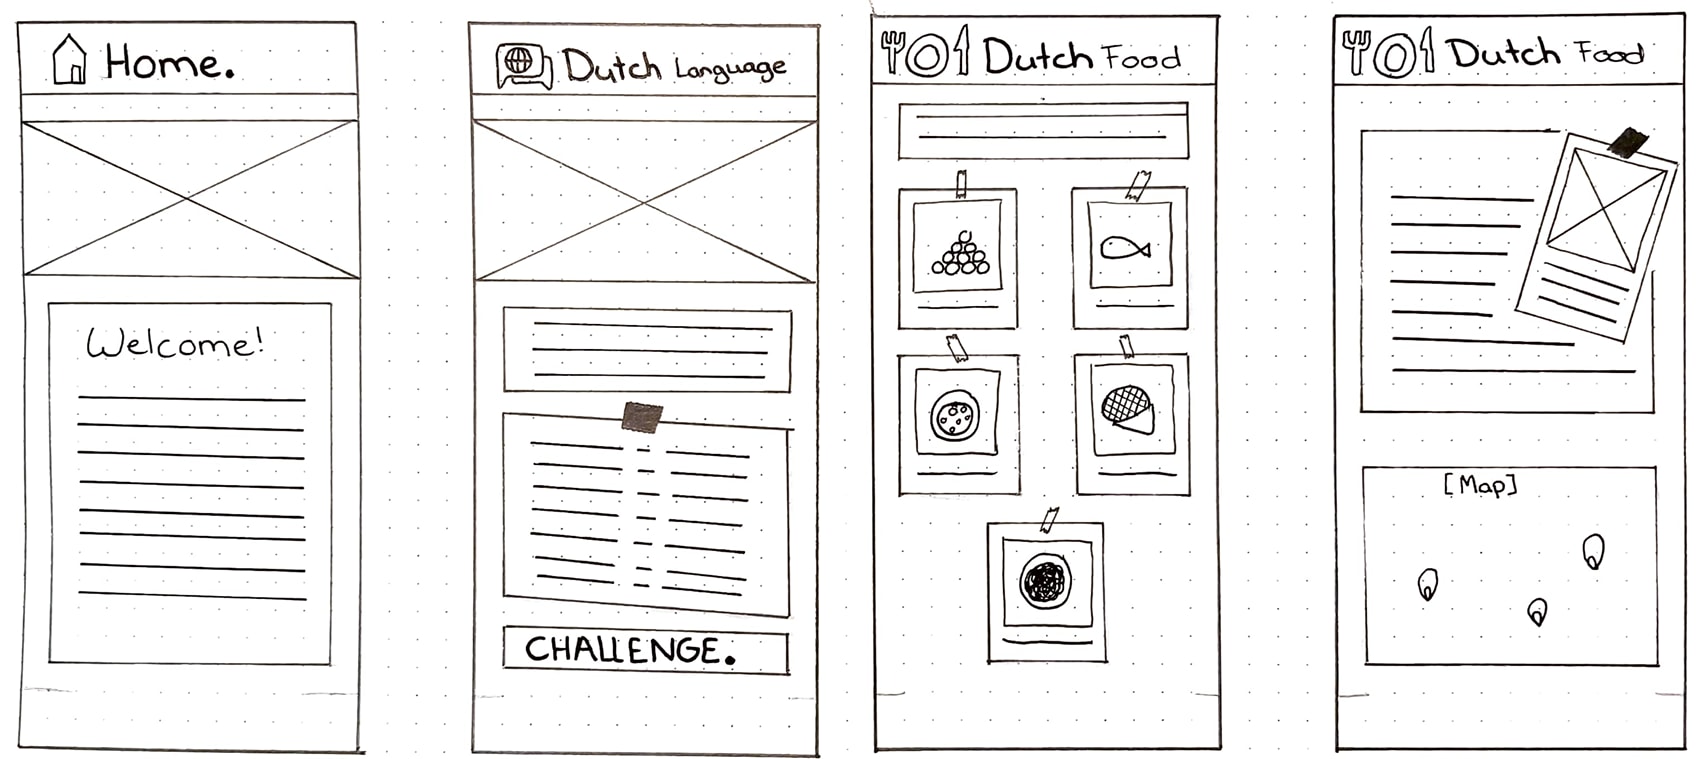 Home.
Welcome!
Dutch Language
CHALLENGE.
Dutch Food
Dutch Food
[Map]